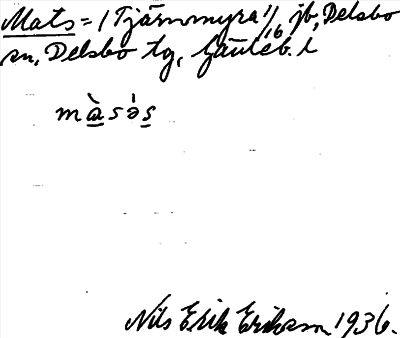 Mats = /Tjärnmyra 1/16 jb, Delsbo
sn, Delsbo tg, Gävleb. l
màsəs
Nils Erik Eriksson 1936.